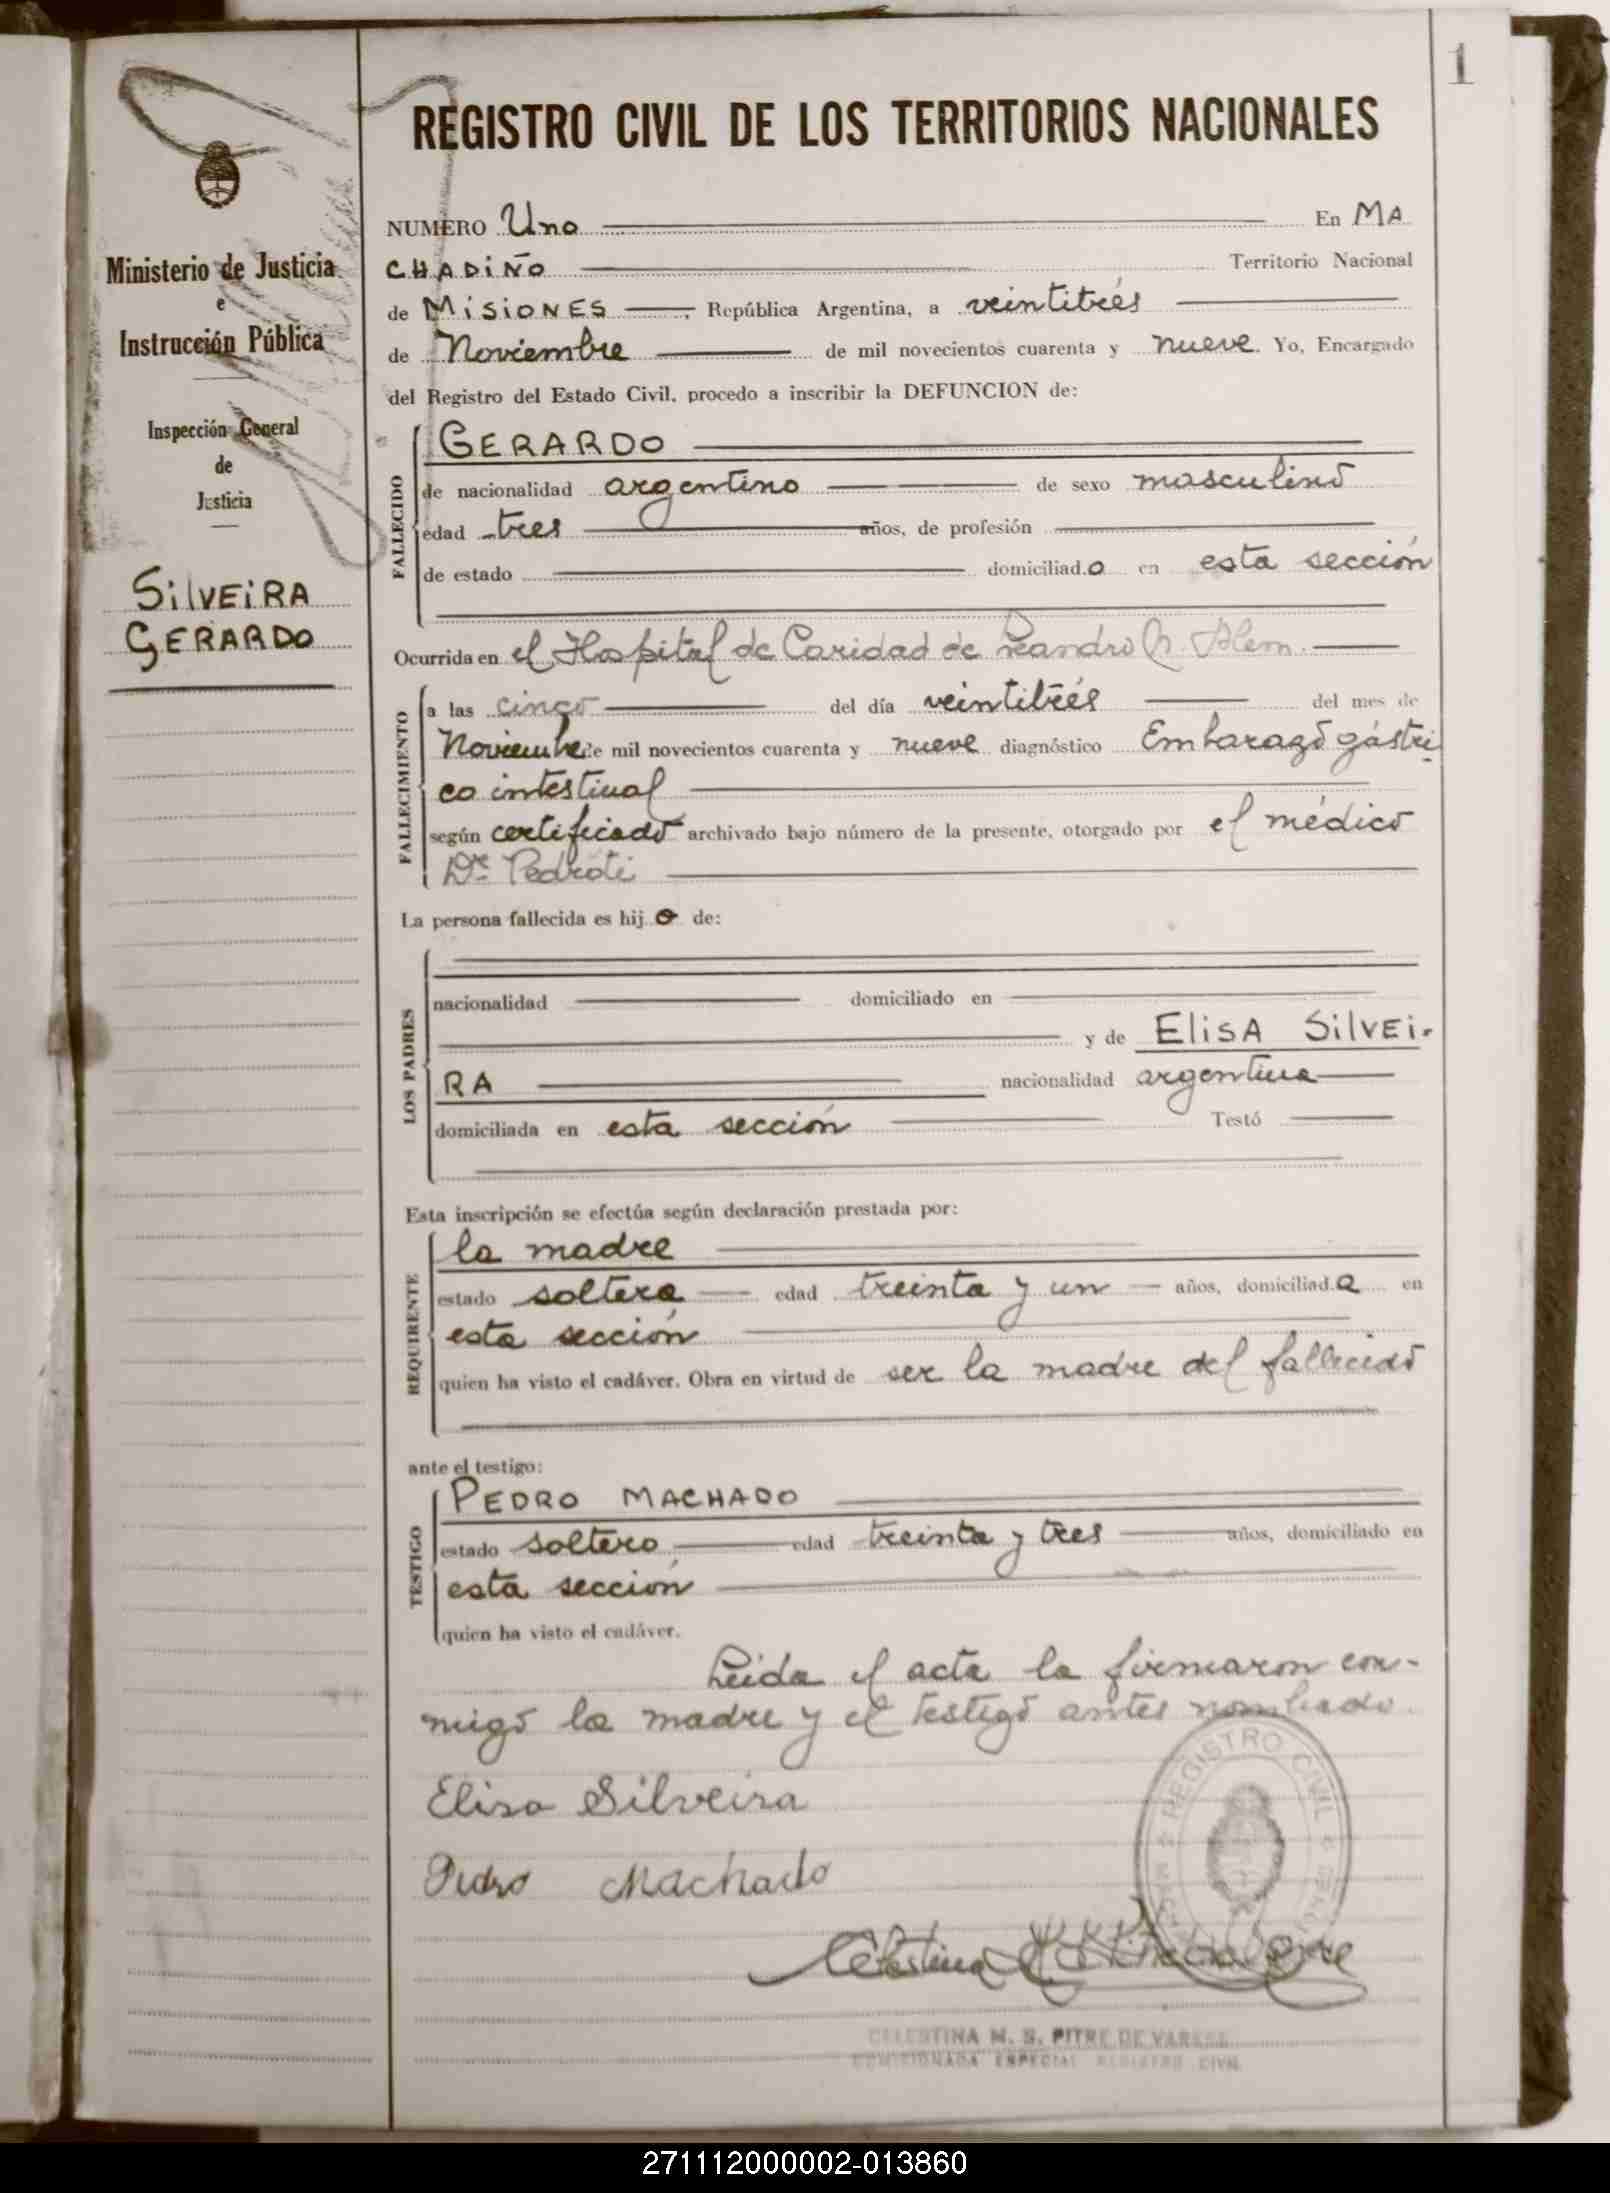 1
REGISTRO CIVIL DE LOS TERRITORIOS NACIONALES
Ministerio de Justicia
e
Instrucción Pública
Inspección General
de
Justicia
SILVEIRA
GERARDO
NUMERO Uno En MA
CHADIÑO Territorio Nacional
de MISIONES, República Argentina, a veintitrés
de Noviembre de mil novecientos cuarenta y nueve Yo, Encargado
del Registro del Estado Civil, procedo a inscribir la DEFUNCION de:
FALLECIDO
GERARDO
de nacionalidad argentino de sexo masculino
edad tres años, de profesión
de estado domiciliado en esta sección
Ocurrida en el Hospital de Caridad de Leandro N. Alem.
FALLECIMIENTO
a las cinco del día veintitrés del mes de
Noviembre de mil novecientos cuarenta y nueve diagnóstico Embarazo gástri
co intestinal
según certificado archivado bajo número de la presente, otorgado por el médico
Dr. Pedroti
La persona fallecida es hijo de:
LOS PADRES
nacionalidad domiciliado en
y de ELISA SILVEI-
RA nacionalidad argentina
domiciliada en esta sección Testó
Esta inscripción se efectúa según declaración prestada por:
REQUIRENTE
la madre
estado soltera edad treinta y un años, domiciliada en
esta sección
quien ha visto el cadáver. Obra en virtud de ser la madre del fallecido
ante el testigo:
TESTIGO
PEDRO MACHADO
estado soltero edad treinta y tres años, domiciliado en
esta sección
quien ha visto el cadáver.
Leida el acta la firmaron con-
migo la madre y el testigo antes nombrado.
Elisa Silveira
Pedro Machado
REGISTRO CIVIL
Celestina
CELESTINA M. S. PITRE DE VARESE
COMISIONADA ESPECIAL REGISTRO CIVIL
271112000002-013860